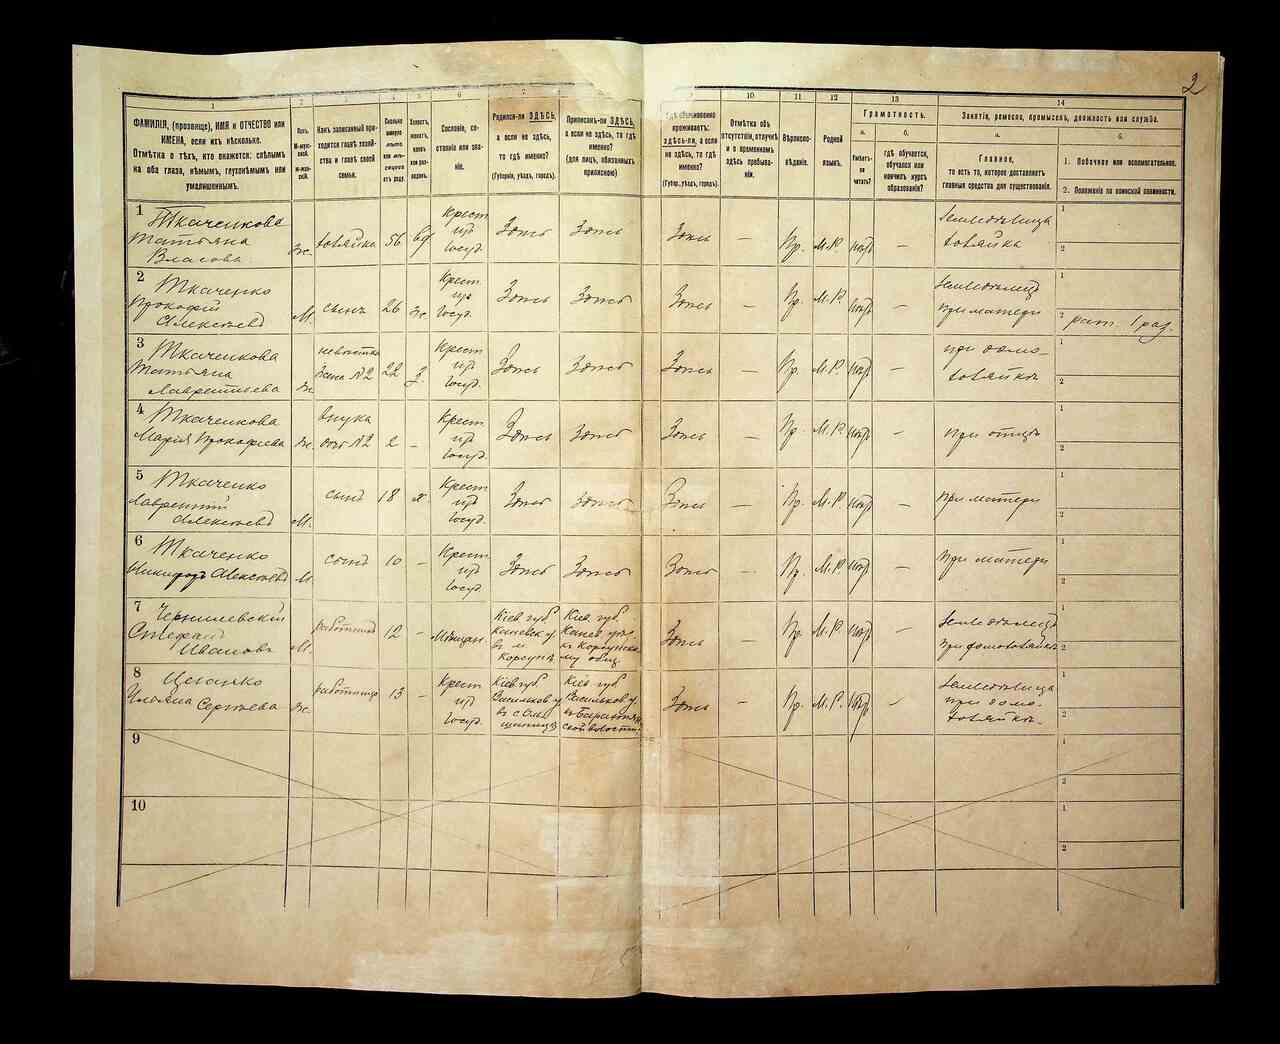 2
1
ФАМИЛІЯ, (прозвище), ИМЯ и ОТЧЕСТВО или
ИМЕНА, если ихъ нѣсколько.
Отмѣтка о тѣхъ, кто окажется: слѣпымъ
на оба глаза, нѣмымъ, глухонѣмымъ или
умалишеннымъ.
2
Полъ.
М-мужской.
Ж-женскій.
3
Какъ записанный приходится главѣ хозяйства и главѣ своей семьи.
4
Сколько минуло лѣтъ или мѣсяцевъ отъ роду.
5
Холостъ, женатъ, вдовъ или разведенъ.
6
Сословіе, состояніе или званіе.
7
Родился-ли ЗДѢСЬ,
а если не здѣсь,
то гдѣ именно?
(Губернія, уѣздъ, городъ).
Приписанъ-ли ЗДѢСЬ,
а если не здѣсь, то гдѣ
именно?
(для лицъ, обязанныхъ
припискою)
Гдѣ обыкновенно
проживаетъ:
здѣсь-ли, а если
не здѣсь, то гдѣ
именно?
(Губер., уѣздъ, городъ).
10
Отмѣтка объ
отсутствіи, отлучкѣ
и о временномъ
здѣсь пребываніи.
11
Вѣроисповѣданіе.
12
Родной
языкъ.
13
Грамотность.
а.
Умѣетъ-ли
читать?
б.
гдѣ обучается,
обучался или
кончилъ курсъ
образованія?
14
Занятіе, ремесло, промыселъ, должность или служба.
а.
Главное,
то есть то, которое доставляетъ
главныя средства для существованія.
б.
1. Побочное или вспомогательное.
2. Положеніе по воинской повинности.
1 Ткаченкова
Татьяна
Власова Ж. хозяйка 56 вд. Крест. из Госуд. Здѣсь Здѣсь Здѣсь — Пр. М.Р. — Земледѣлица
хозяйка
1
2
2 Ткаченко
Прокофій
Алексѣевъ М. сынъ 26 ж. Крест. из Госуд. Здѣсь Здѣсь Здѣсь — Пр. М.Р. — Земледѣлецъ
при матери
1
2 рат. 1 раз.
3 Ткаченкова
Татьяна
Лаврентіева Ж. невѣстка
жена №2 22 з. Крест. из Госуд. Здѣсь Здѣсь Здѣсь — Пр. М.Р. — при домо-
хозяйкѣ
1
2
4 Ткаченкова
Марія Прокофіева Ж. внука
отъ №2 2 — Крест. из Госуд. Здѣсь Здѣсь Здѣсь — Пр. М.Р. — при отцѣ
1
2
5 Ткаченко
Лаврентій
Алексѣевъ М. сынъ 18 х. Крест. из Госуд. Здѣсь Здѣсь Здѣсь — Пр. М.Р. — при матери
1
2
6 Ткаченко
Никифоръ Алексѣевъ М. сынъ 10 — Крест. из Госуд. Здѣсь Здѣсь Здѣсь — Пр. М.Р. — при матери
1
2
7
Стефанъ
Ивановъ М. работникъ 12 — Мѣщан. Кіев. губ.
Каневск. у.
въ м.
Корсунѣ Кіев. губ.
Канев. у.
къ Корсунско
му общ. Здѣсь — Пр. М.Р. — Земледѣлецъ
при домохозяйкѣ
1
2
8 Цыганко
Ульяна Сергѣева Ж. работница 13 — Крест. Госуд. Кіев. губ.
Васильков. у.
въ с. Кіев. губ.
Васильков. у. Здѣсь — Пр. М.Р. — Земледѣлица
при домо-
хозяйкѣ
1
2
9
1
2
10
1
2